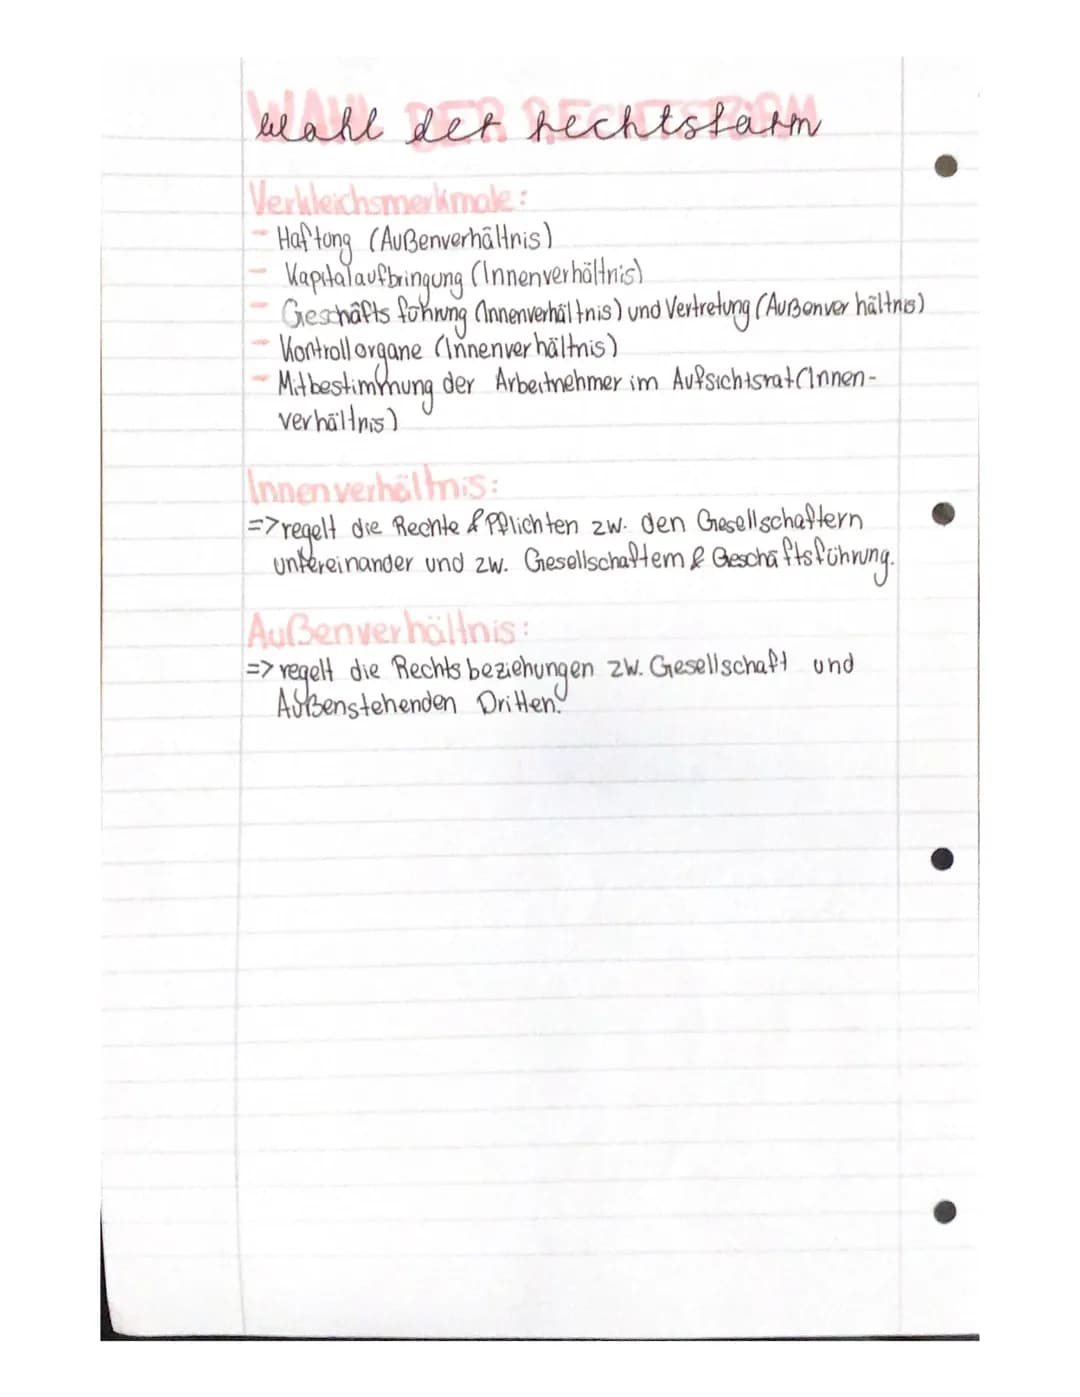 Wahl der Rechtsform
Verkleichsmerkmale:
- Haftung (Außenverhältnis)
- Kapitalaufbringung (Innenverhältnis)
- Geschäftsführung (Innenverhältnis) und Vertretung (Außenverhältnis)
- Kontrollorgane (Innenverhältnis)
- Mitbestimmung der Arbeitnehmer im Aufsichtsrat (Innen-
verhältnis)
Innenverhältnis:
=> regelt die Rechte & Pflichten zw. den Gesellschaftern
untereinander und zw. Gesellschaftern & Geschäftsführung.
Außenverhältnis:
=> regelt die Rechtsbeziehungen zw. Gesellschaft und
Außenstehenden Dritten.